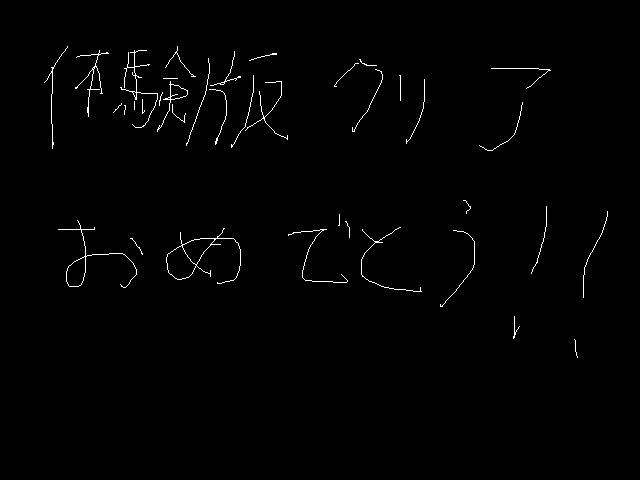 体験版 クリア
おめでとう!!